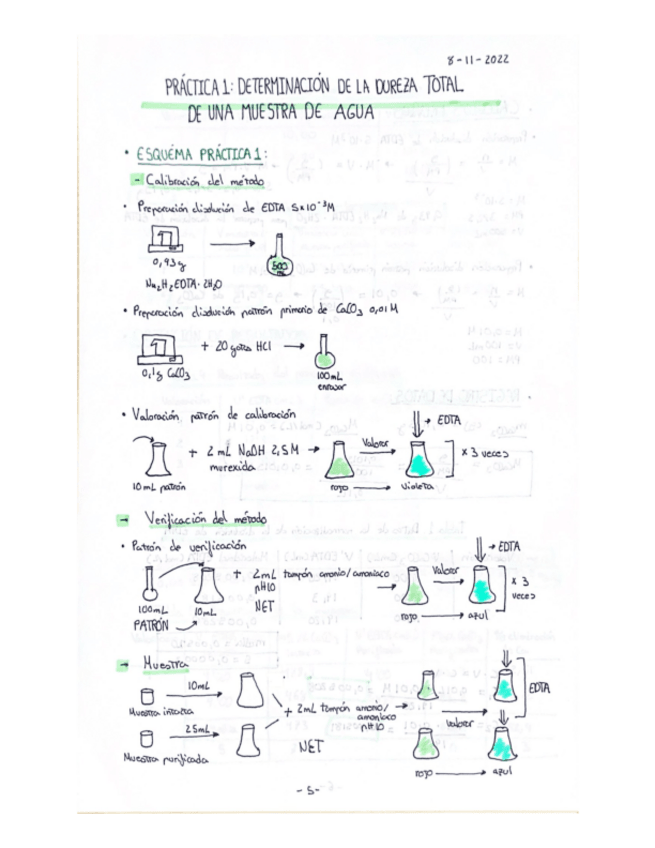 8-11-2022
PRÁCTICA 1: DETERMINACIÓN DE LA DUREZA TOTAL
DE UNA MUESTRA DE AGUA
• ESQUÉMA PRÁCTICA 1:
- Calibración del método
• Preparación disolución de EDTA 5x10⁻³M
0,93g
500 mL
Na₂H₂EDTA·2H₂O
• Preparación disolución patrón primario de CaCO₃ 0,01M
+ 20 gotas HCl
0,1g CaCO₃
100mL
enrasar
• Valoración patrón de calibración
→ EDTA
+ 2 mL NaOH 2,5M
murexida
Valorar
x 3 veces
10mL patrón
rojo → violeta
→ Verificación del método
• Patrón de verificación
→ EDTA
+ 2mL tampón amonio/amoniaco
pH10
NET
Valorar
x 3
veces
100mL
PATRÓN
10mL
rojo → azul
→ Muestra
10mL
Muestra intacta
25mL
Muestra purificada
+ 2mL tampón amonio/
amoniaco
pH10
NET
Valorar
EDTA
rojo → azul
-5-